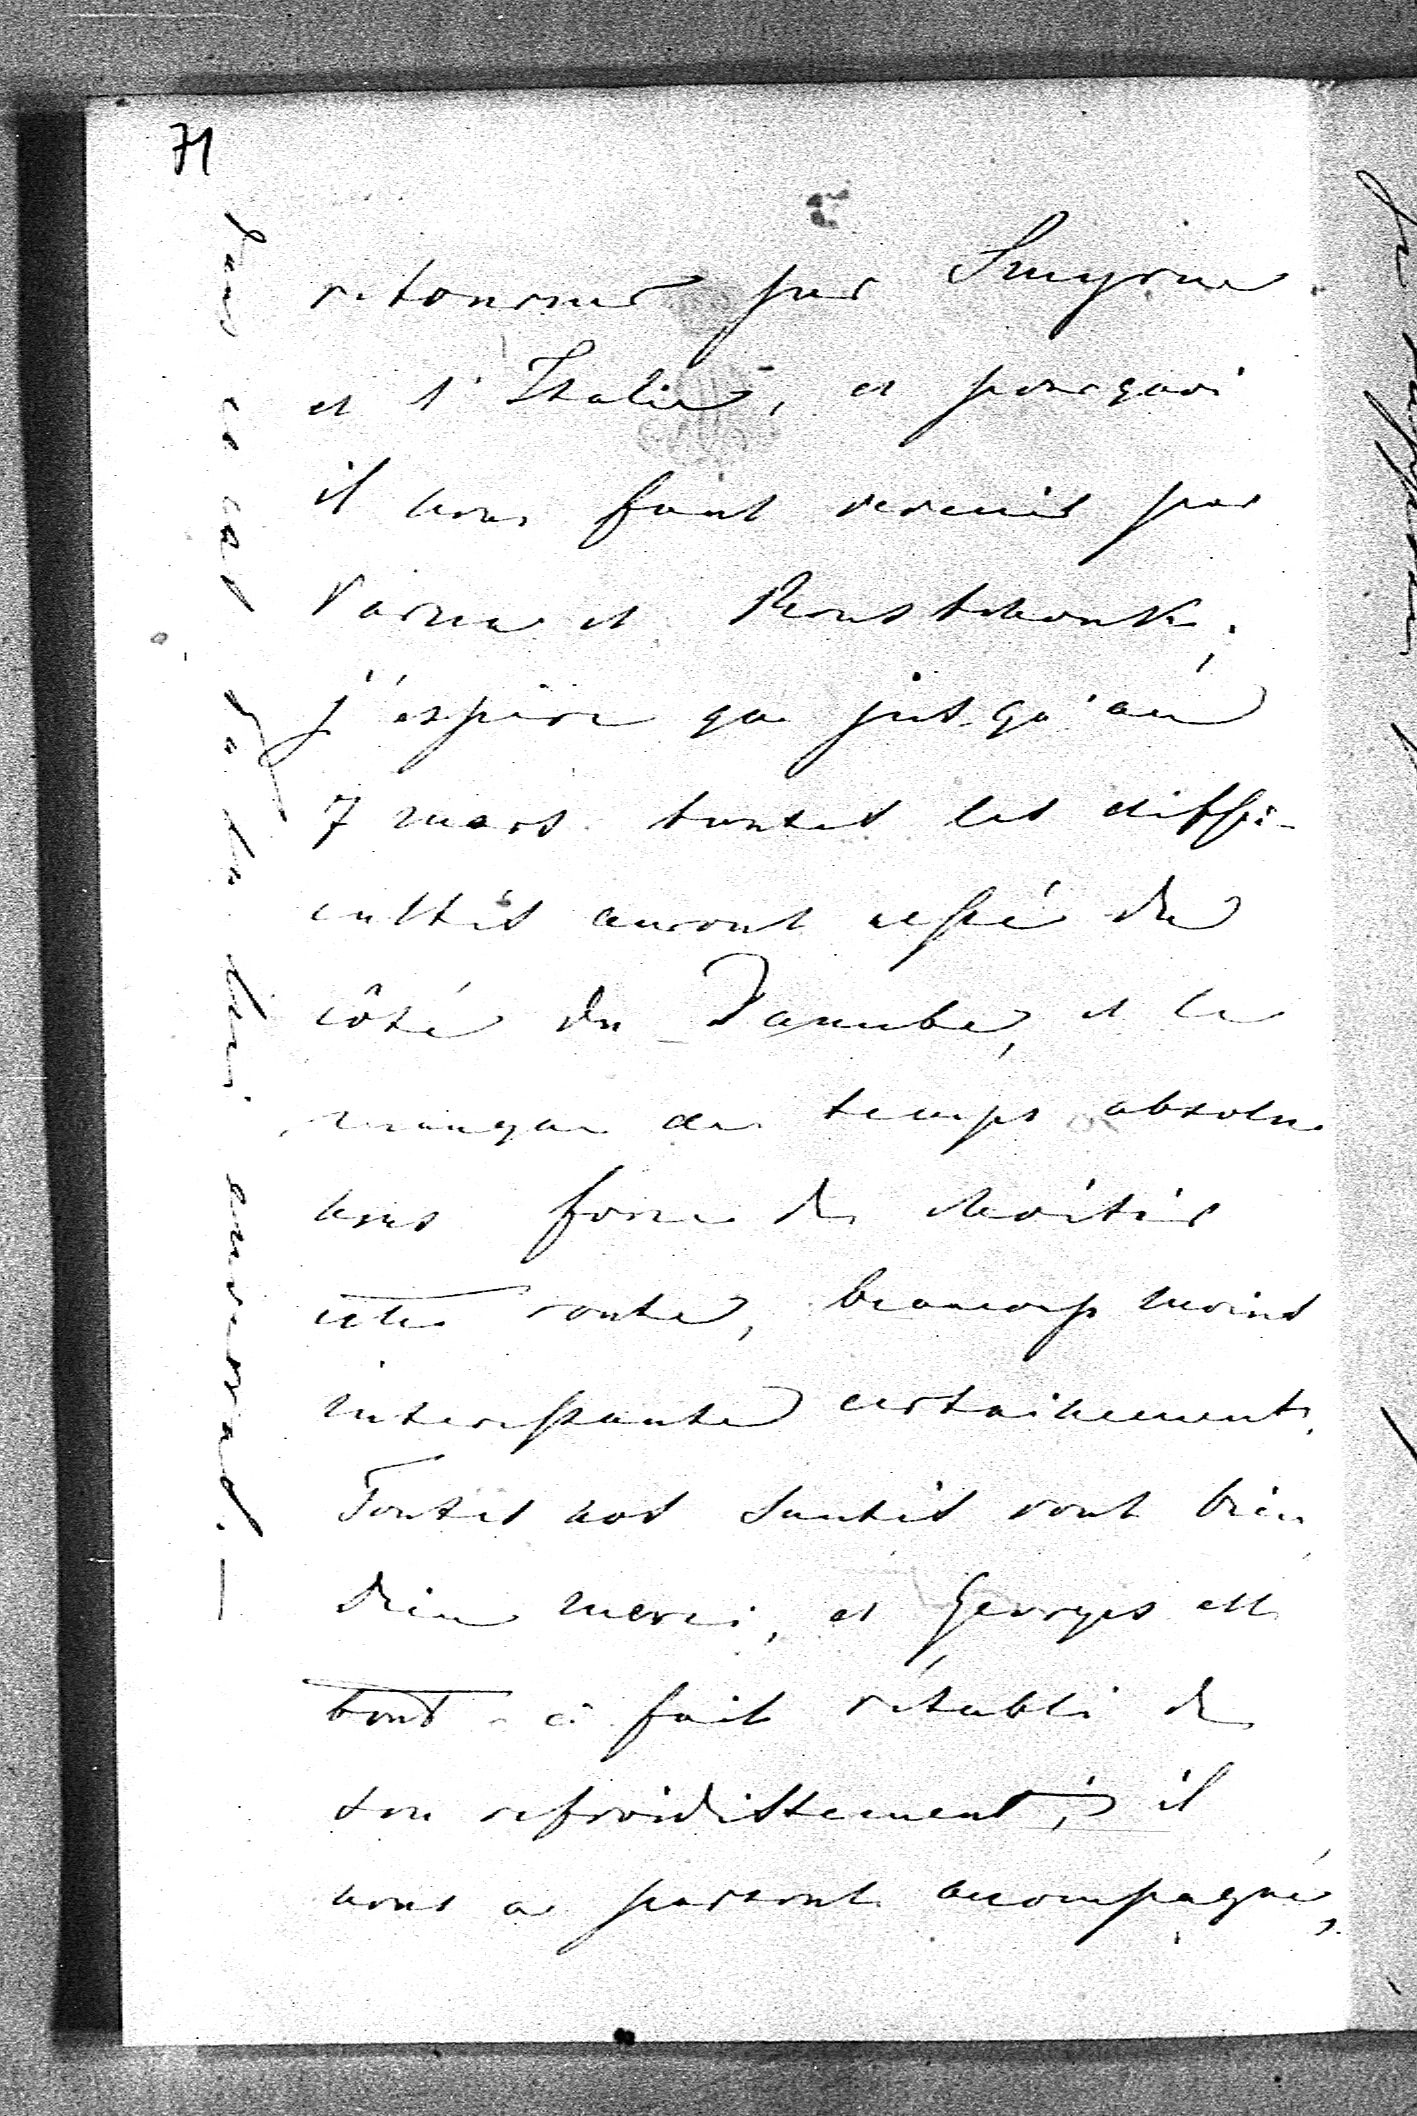 71
retourner par Smyrne
et l'Italie, et pourquoi
il nous faut revenir par
Varna et Roustchouk;
j'espère que jusqu'au
7 mars toutes les diffi-
cultés auront cessé du
côté du Danube, et le
manque de temps absolu
nous force de choisir
cette route, beaucoup moins
interessante certainement.
Toutes nos santés vont bien
Dieu merci, et Georges est
tout-à-fait rétabli de
son refroidissement; il
nous a partout accompagné,
dans ce cas